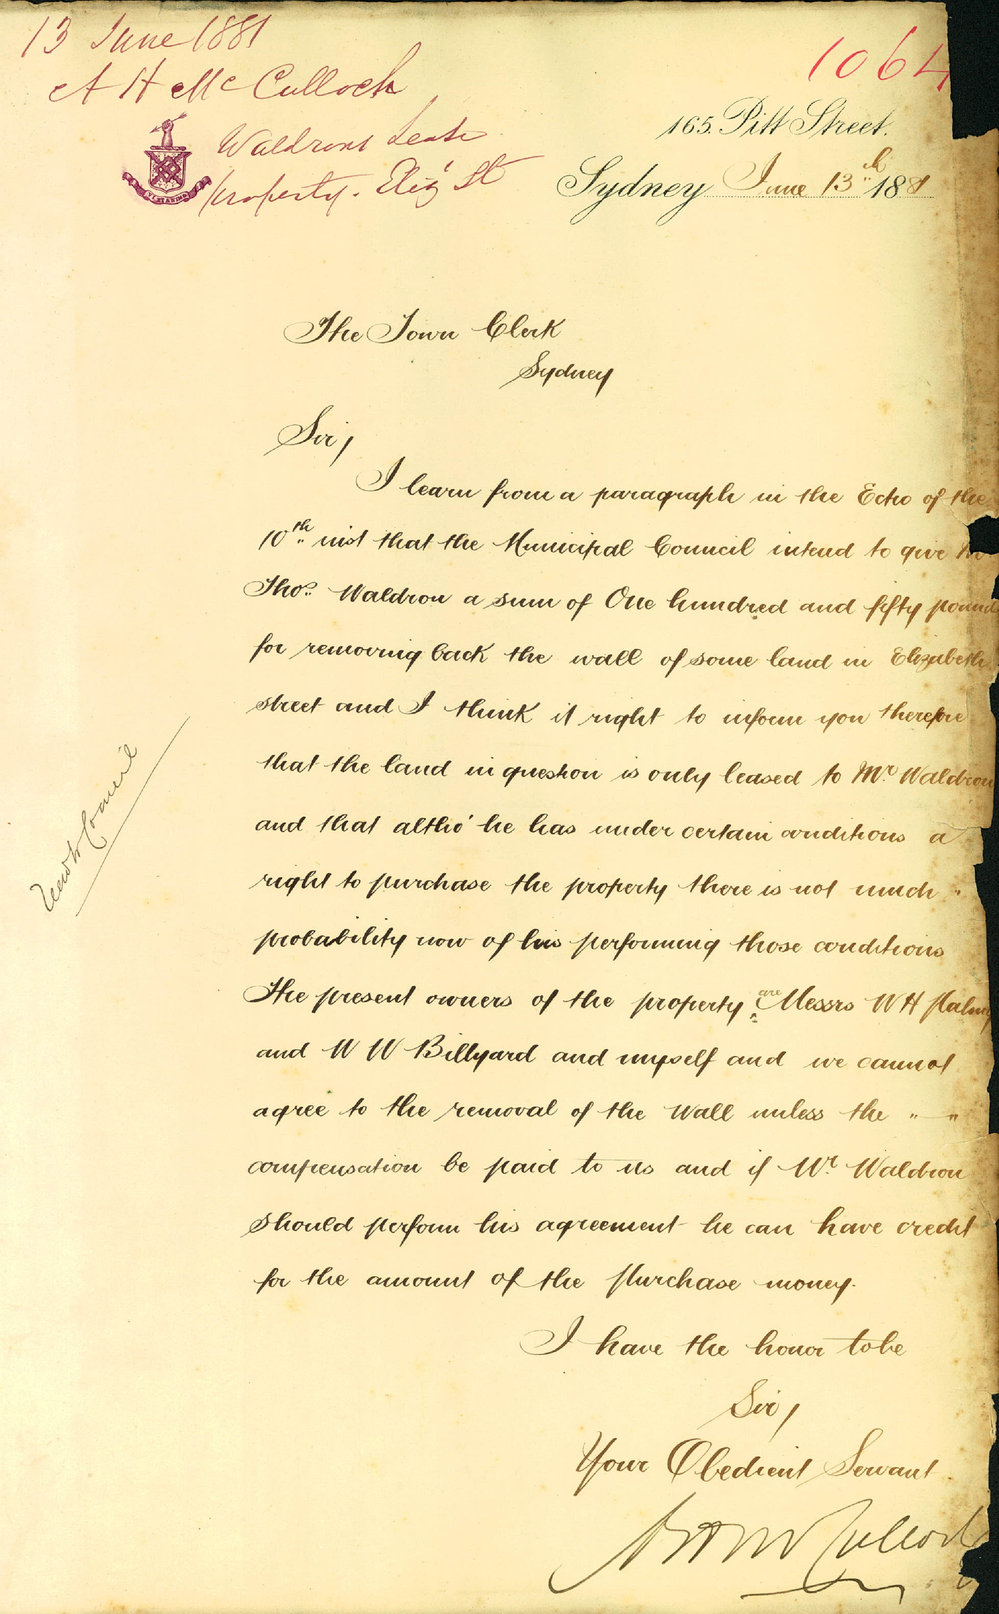 13 June 1881
A H McCulloch
Waldrons Lease
property. Eliz St
1064
165. Pitt Street.
Sydney June 13th 1881
The Town Clerk
Sydney
Sir,
I learn from a paragraph in the Echo of the
10th inst that the Municipal Council intend to give Mr
Thos. Waldron a sum of One hundred and fifty pounds
for removing back the wall of some land in Elizabeth
street and I think it right to inform you therefore
that the land in question is only leased to Mr. Waldron
and that altho' he has under certain conditions a
right to purchase the property there is not much "
probability now of his performing those conditions
The present owners of the property are Messrs W H
and W W Billyard and myself and we cannot
agree to the removal of the Wall unless the " — "
compensation be paid to us and if Mr. Waldron
should perform his agreement he can have credit
for the amount of the purchase money.
I have the honor to be
Sir,
Your Obedient Servant
A H McCulloch
Council